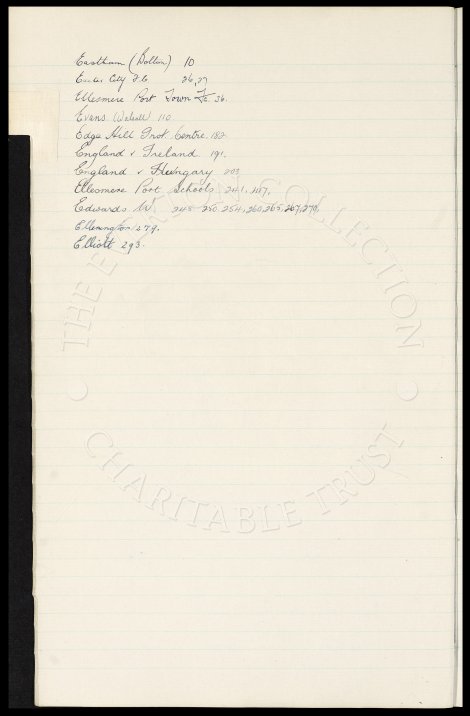 Eastham (Bolton) 10
Exeter City F.C. 26, 27
Ellesmere Port Town F.C. 36.
Evans (Walsall) 110
Edge Hill Centre. 182
England v Ireland 191.
England v Hungary 203
Ellesmere Port Schools 241, 267,
Edwards W. 245 250. 254, 260, 265, 267, 270,
Ellerington 279.
Elliott 293.
THE COLLECTION
CHARITABLE TRUST